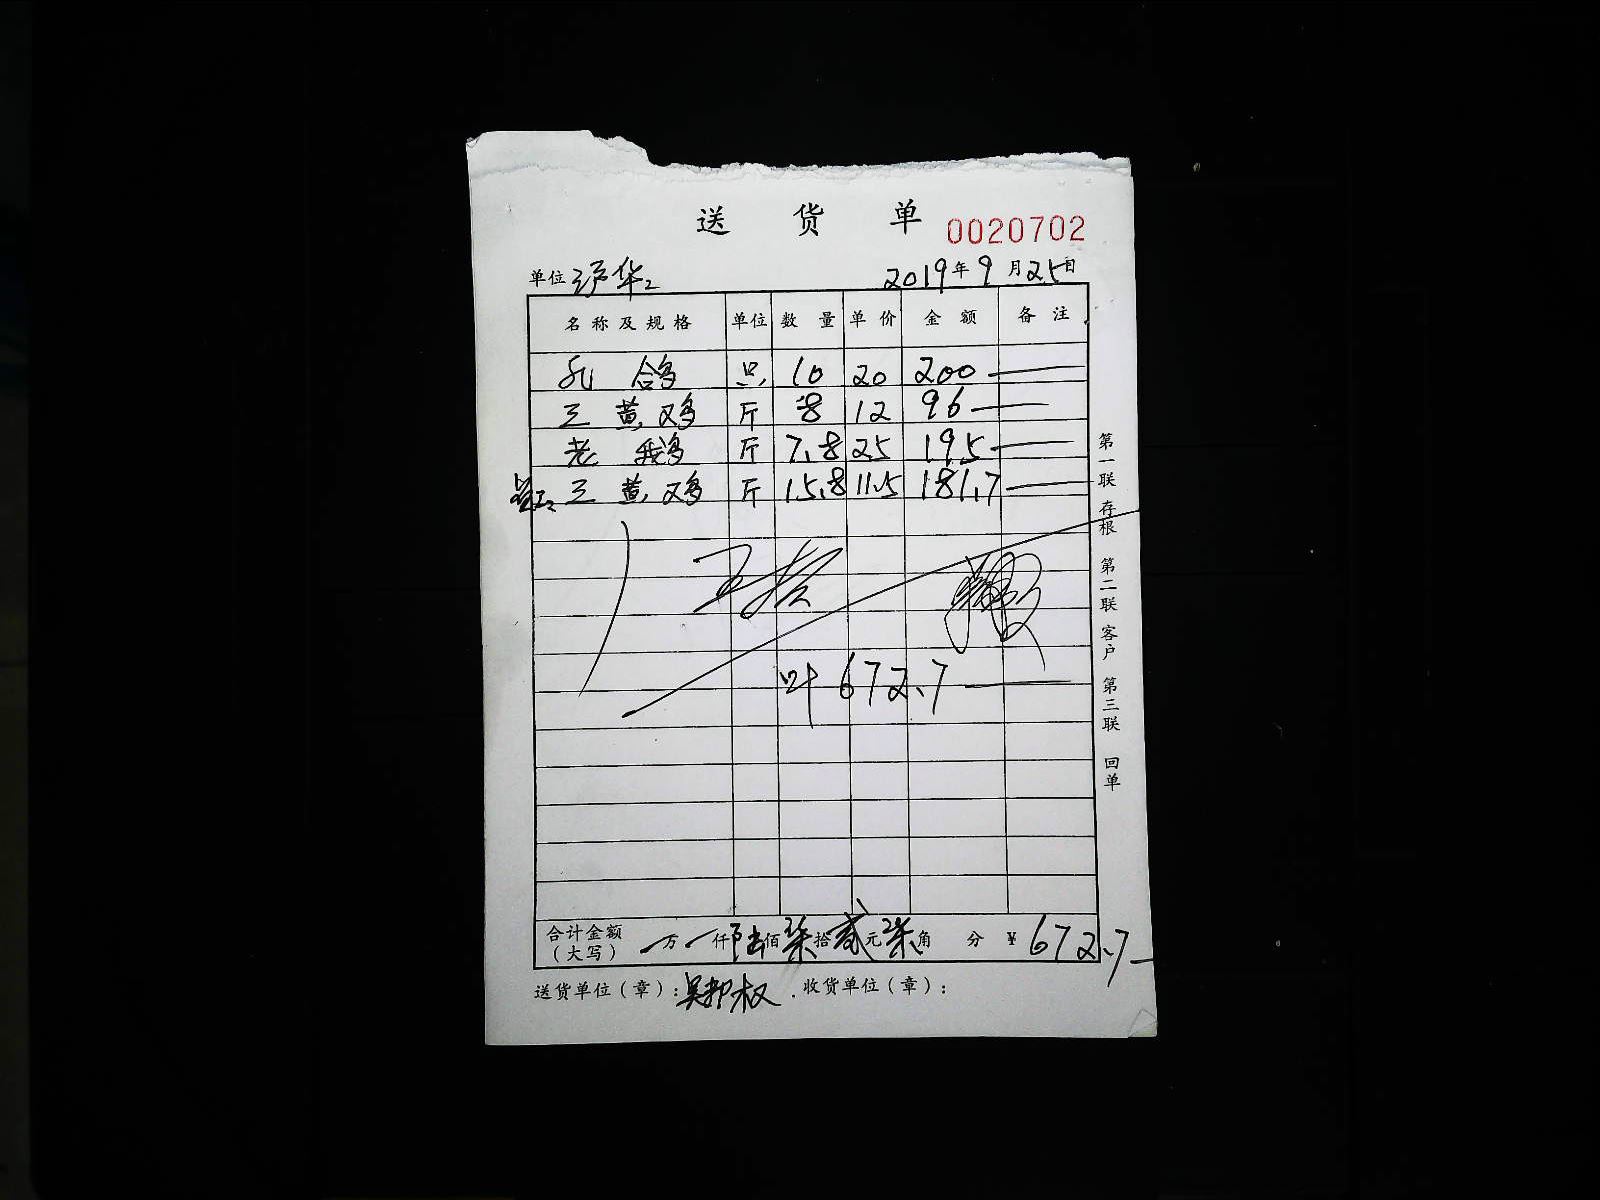 送 货 单 0020702
单位 泸华 2019年9月25日
名称及规格 单位 数量 单价 金额 备注
乳 鸽 只 10 20 200
三 黄 鸡 斤 8 12 96
老 鹅 斤 7.8 25 195
三 黄 鸡 斤 15.8 11.5 181.7
叶 672.7
合计金额（大写） 万 仟 陆佰 柒拾 贰元 柒角 分 ¥ 672.7
送货单位（章）：吴邦权 收货单位（章）：
第一联 存根 第二联 客户 第三联 回单